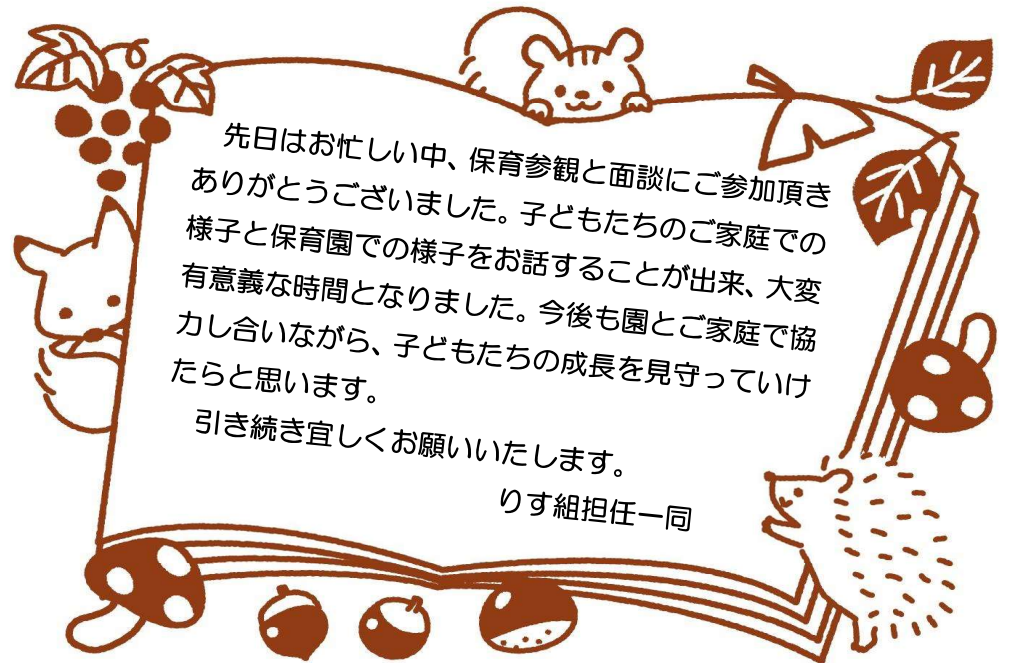 先日はお忙しい中、保育参観と面談にご参加頂き
ありがとうございました。子どもたちのご家庭での
様子と保育園での様子をお話することが出来、大変
有意義な時間となりました。今後も園とご家庭で協
力し合いながら、子どもたちの成長を見守っていけ
たらと思います。
引き続き宜しくお願いいたします。
りす組担任一同